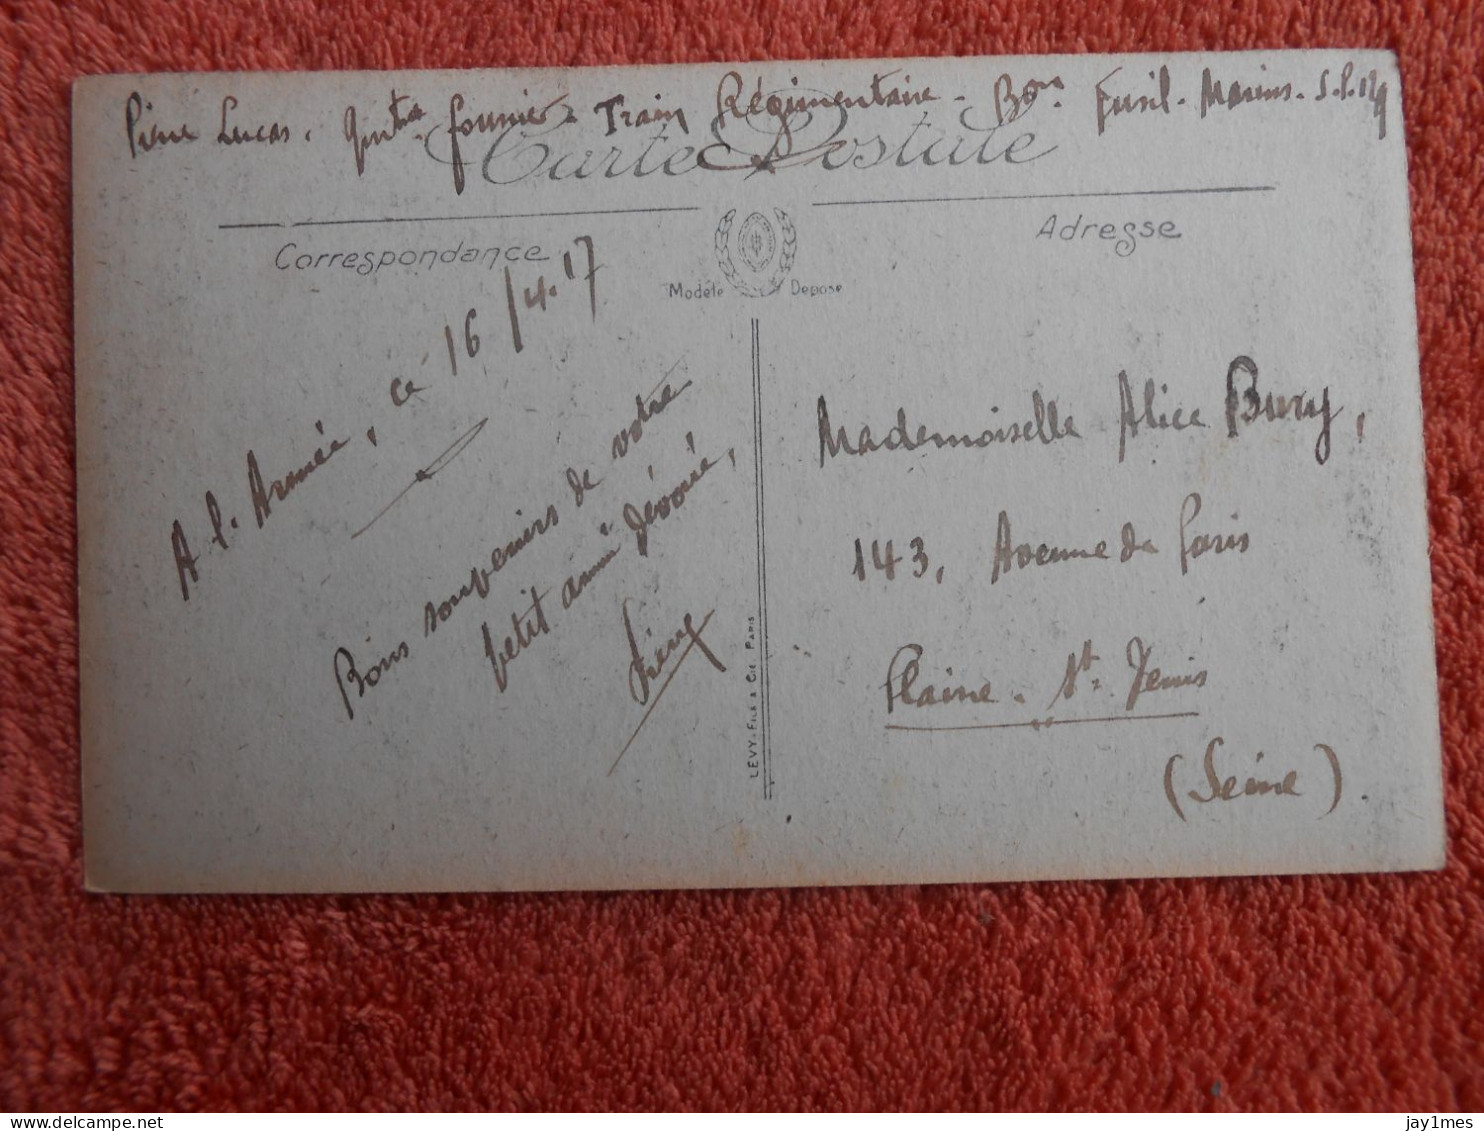 Pierre Lucas. Quartier fourrier - Train Régimentaire - Bon Fusil. Marins. S.P. 129
Carte Postale
Correspondance
Adresse
Modèle Déposé
A l'Armée, ce 16/4.17
Bons souvenirs de votre
petit ami dévoué,
Pierre
LEVY FILS & CIE PARIS
Mademoiselle Alice Bury,
143, Avenue de Paris
Plaine - St-Denis
(Seine).
jay1mes